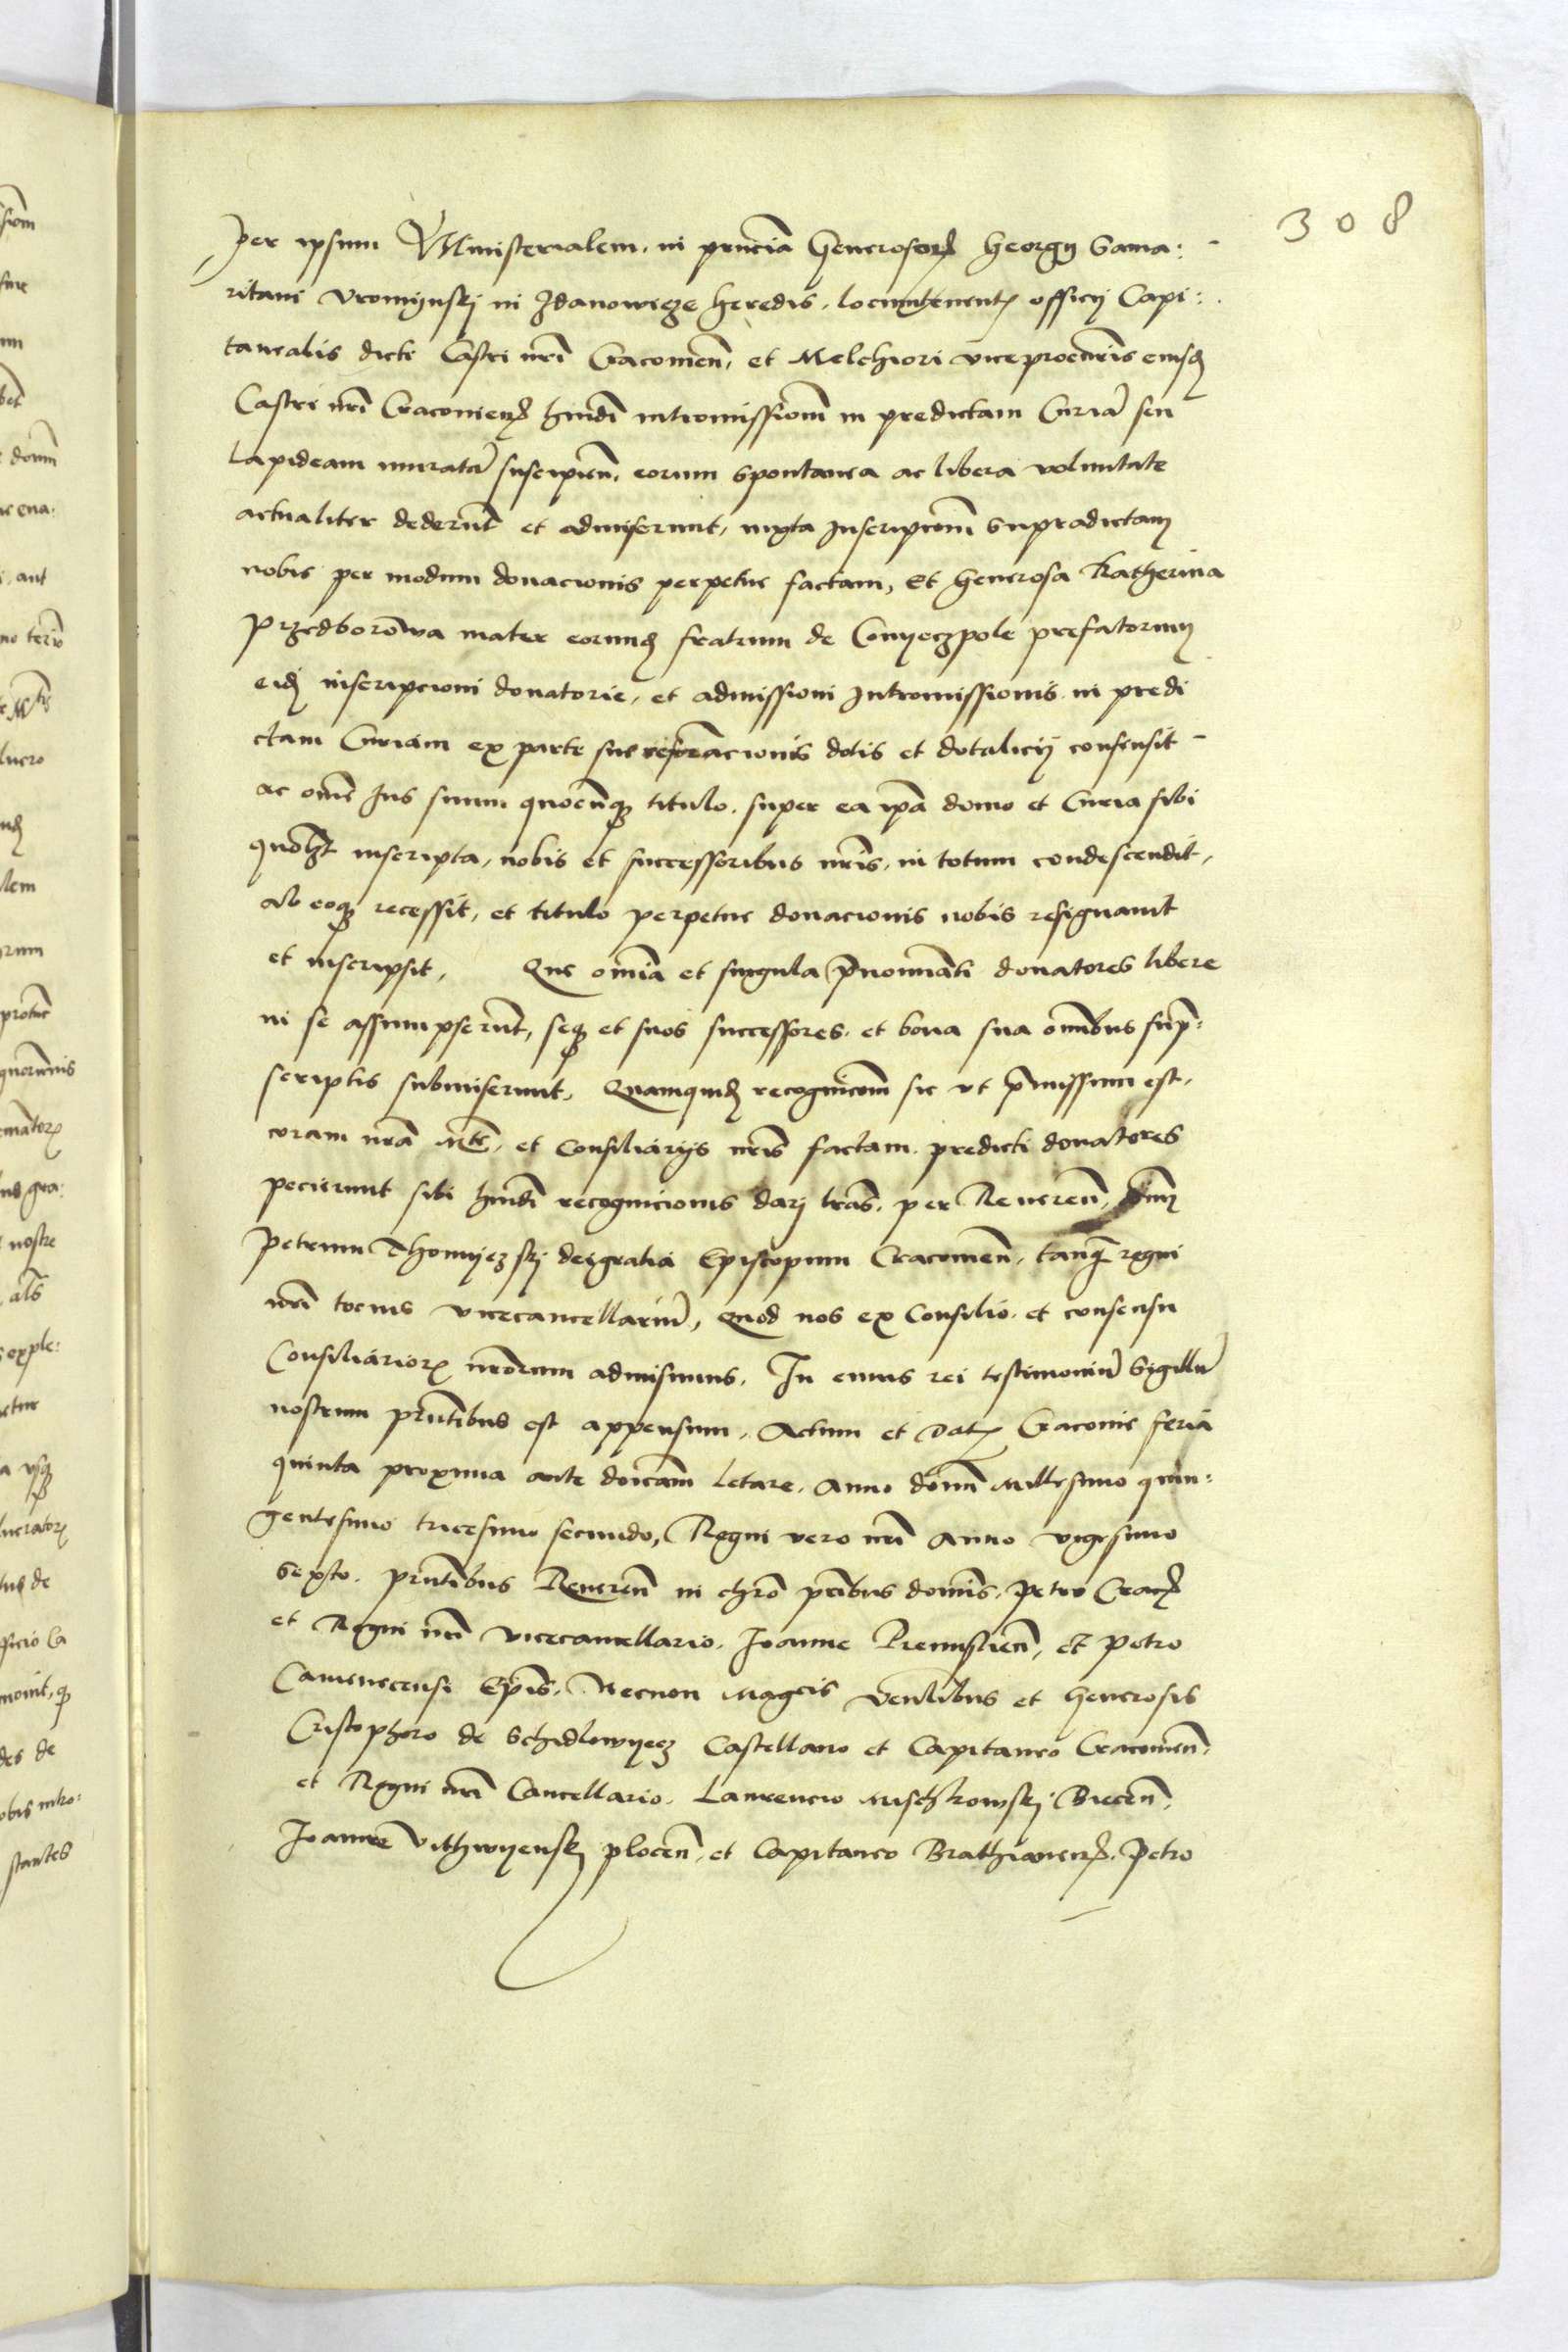 308
Per ipsum Ministerialem, in prnciā Generosorꝝ Georgij Sama:
ritani Vromijnskj in Zdanowicze heredis, locumtenentꝭ officij Capi:
tanealis dicti Castri nr̄i Cracouien̄, et Melchiori viceprocurīs eiusꝺ
Castri nr̄i Cracouienꝭ hmōi intromissionē in predictam Curiā seu
Lapideam muratā suscipien̄, eorum spontanea ac libera voluntate
actualiter dederūt et admiserunt, iuxta Inscripcionē supradictam
nobis per modum donacionis perpetue factam, Et Generosa Katherina
Przedborowa mater eorumꝺ fratrum de Conyeczpole prefatorum
eiꝺ inscripcioni donatorie, et admissioni Intromissionis in predi
ctam Curiam ex parte sue reformacionis dotis et dotalicij consensit
ac om̄e Ius suum quocūqꝫ titulo, super ea ip̄a domo et Curia sibi
quōlꝫ inscripta, nobis et successoribus nr̄is, in totum condescendit,
ab eoqꝫ recessit, et titulo perpetue donacionis nobis resignauit
et inscripsit, Que om̄ia et singula p̄nominati donatores libere
in se assumpserūt, seqꝫ et suos successores, et bona sua om̄ibus sup̄:
scriptis submiserunt, Quamquidꝫ recognicōem sic vt p̄missum est,
coram nrā Mte, et Consiliarijs nr̄is factam, predicti donatores
pecierunt sibi hmōi recognicionis darj lrās, per Reueren̄, dnm̄
Petrum Thomijczskj dei gratia Episcopum Cracouien̄, tanqꝫ regni
nr̄i tocius vicecancellariū, Quod nos ex Consilio, et consensu
Consiliariorꝫ nr̄orum admisimus, In cuius rei testimoniū Sigillū
nostrum pr̄ntibus est appensum, Actum et Datꝫ Cracouie feria
quinta proxima ante doīcam Letare, Anno dom̄i Millesimo quin:
gentesimo tricesimo secundo, Regni vero nr̄i Anno vigesimo
Sexto, pr̄ntibus Reueren̄ in chrō pr̄ibus domīs, Petro Cracꝭ
et Regni nr̄i vicecancellario, Ioanne Premislien̄, et Petro
Camenecensi Ep̄is, Necnon Magcīs Venlibus et Generosis
Cristophoro de Schidlowyecz Castellano et Capitaneo Cracouien̄,
et Regni nr̄i Cancellario, Laurencio Mischkowskj Biecen̄,
Ioanne Vithwyenskj plocen̄, et Capitaneo Brathianenꝭ, Petro